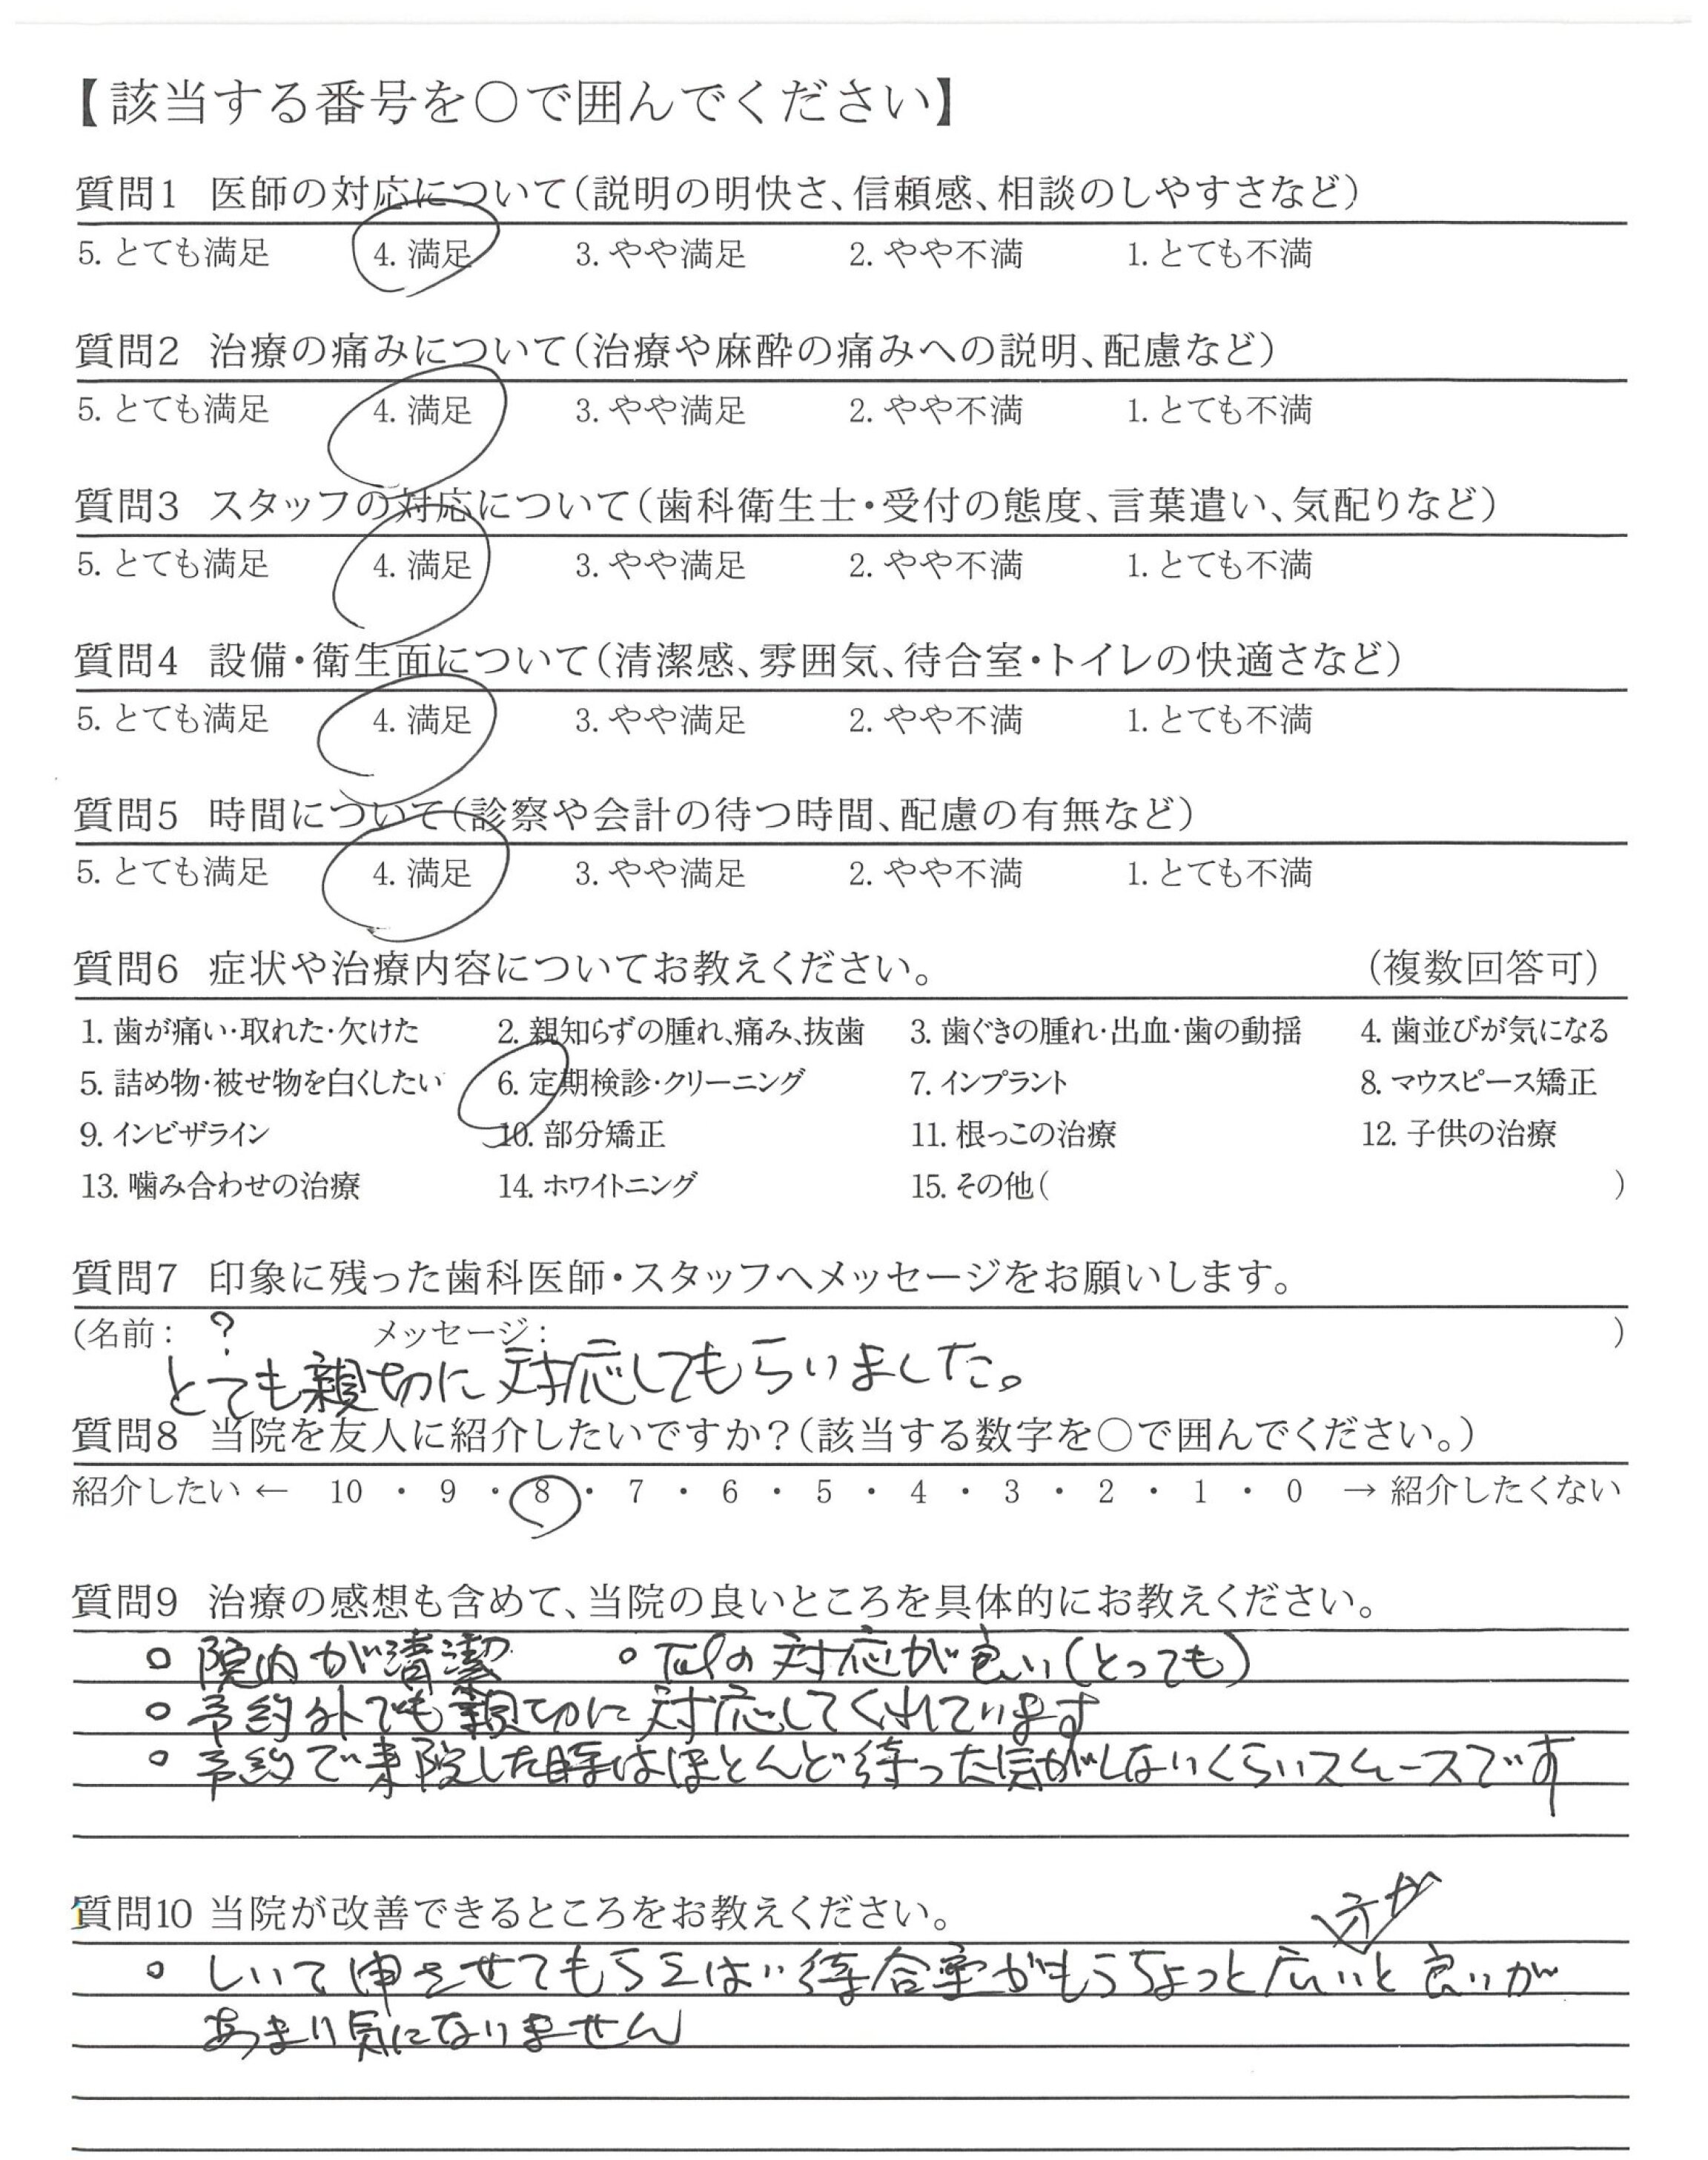 【該当する番号を〇で囲んでください】
質問1 医師の対応について(説明の明快さ、信頼感、相談のしやすさなど)
5. とても満足 4. 満足 3. やや満足 2. やや不満 1. とても不満
質問2 治療の痛みについて(治療や麻酔の痛みへの説明、配慮など)
5. とても満足 4. 満足 3. やや満足 2. やや不満 1. とても不満
質問3 スタッフの対応について(歯科衛生士・受付の態度、言葉遣い、気配りなど)
5. とても満足 4. 満足 3. やや満足 2. やや不満 1. とても不満
質問4 設備・衛生面について(清潔感、雰囲気、待合室・トイレの快適さなど)
5. とても満足 4. 満足 3. やや満足 2. やや不満 1. とても不満
質問5 時間について(診察や会計の待つ時間、配慮の有無など)
5. とても満足 4. 満足 3. やや満足 2. やや不満 1. とても不満
質問6 症状や治療内容についてお教えください。 (複数回答可)
1. 歯が痛い・取れた・欠けた 2. 親知らずの腫れ、痛み、抜歯 3. 歯ぐきの腫れ・出血・歯の動揺 4. 歯並びが気になる
5. 詰め物・被せ物を白くしたい 6. 定期検診・クリーニング 7. インプラント 8. マウスピース矯正
9. インビザライン 10. 部分矯正 11. 根っこの治療 12. 子供の治療
13. 噛み合わせの治療 14. ホワイトニング 15. その他( )
質問7 印象に残った歯科医師・スタッフへメッセージをお願いします。
(名前: ? メッセージ: )
とても親切に対応してもらいました。
質問8 当院を友人に紹介したいですか?(該当する数字を〇で囲んでください。)
紹介したい ← 10 ・ 9 ・ 8 ・ 7 ・ 6 ・ 5 ・ 4 ・ 3 ・ 2 ・ 1 ・ 0 → 紹介したくない
質問9 治療の感想も含めて、当院の良いところを具体的にお教えください。
○ 院内が清潔 ○ Telの対応が良い(とっても)
○ 予約外でも親切に対応してくれています
○ 予約で来院した時はほとんど待った気がしないくらいスムースです
質問10 当院が改善できるところをお教えください。
方が
○ しいて申させてもらえば、待合室がもうちょっと広いと良いが
あまり気になりません